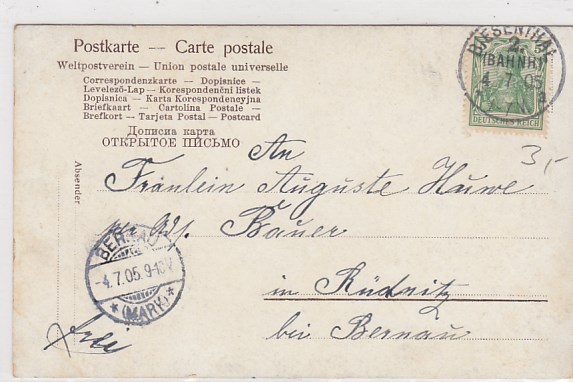 Postkarte — Carte postale
Weltpostverein — Union postale universelle
Correspondenzkarte — Dopisnice —
Levelező-Lap — Korespondenční listek
Dopisnica — Karta Korespondencyjna
Briefkaart — Cartolina Postale —
Brefkort — Tarjeta Postal — Postcard
Дописна карта
ОТКРЫТОЕ ПИСЬМО
Absender
BIESENTHAL
2.
(BAHNH.)
4.7.05
DEUTSCHES REICH
3,-
An
Fräulein Auguste Huwe
Bauer
in Rüdnitz
bei Bernau
BERNAU
-4.7.05.9-10V.
* (MARK) *
frei